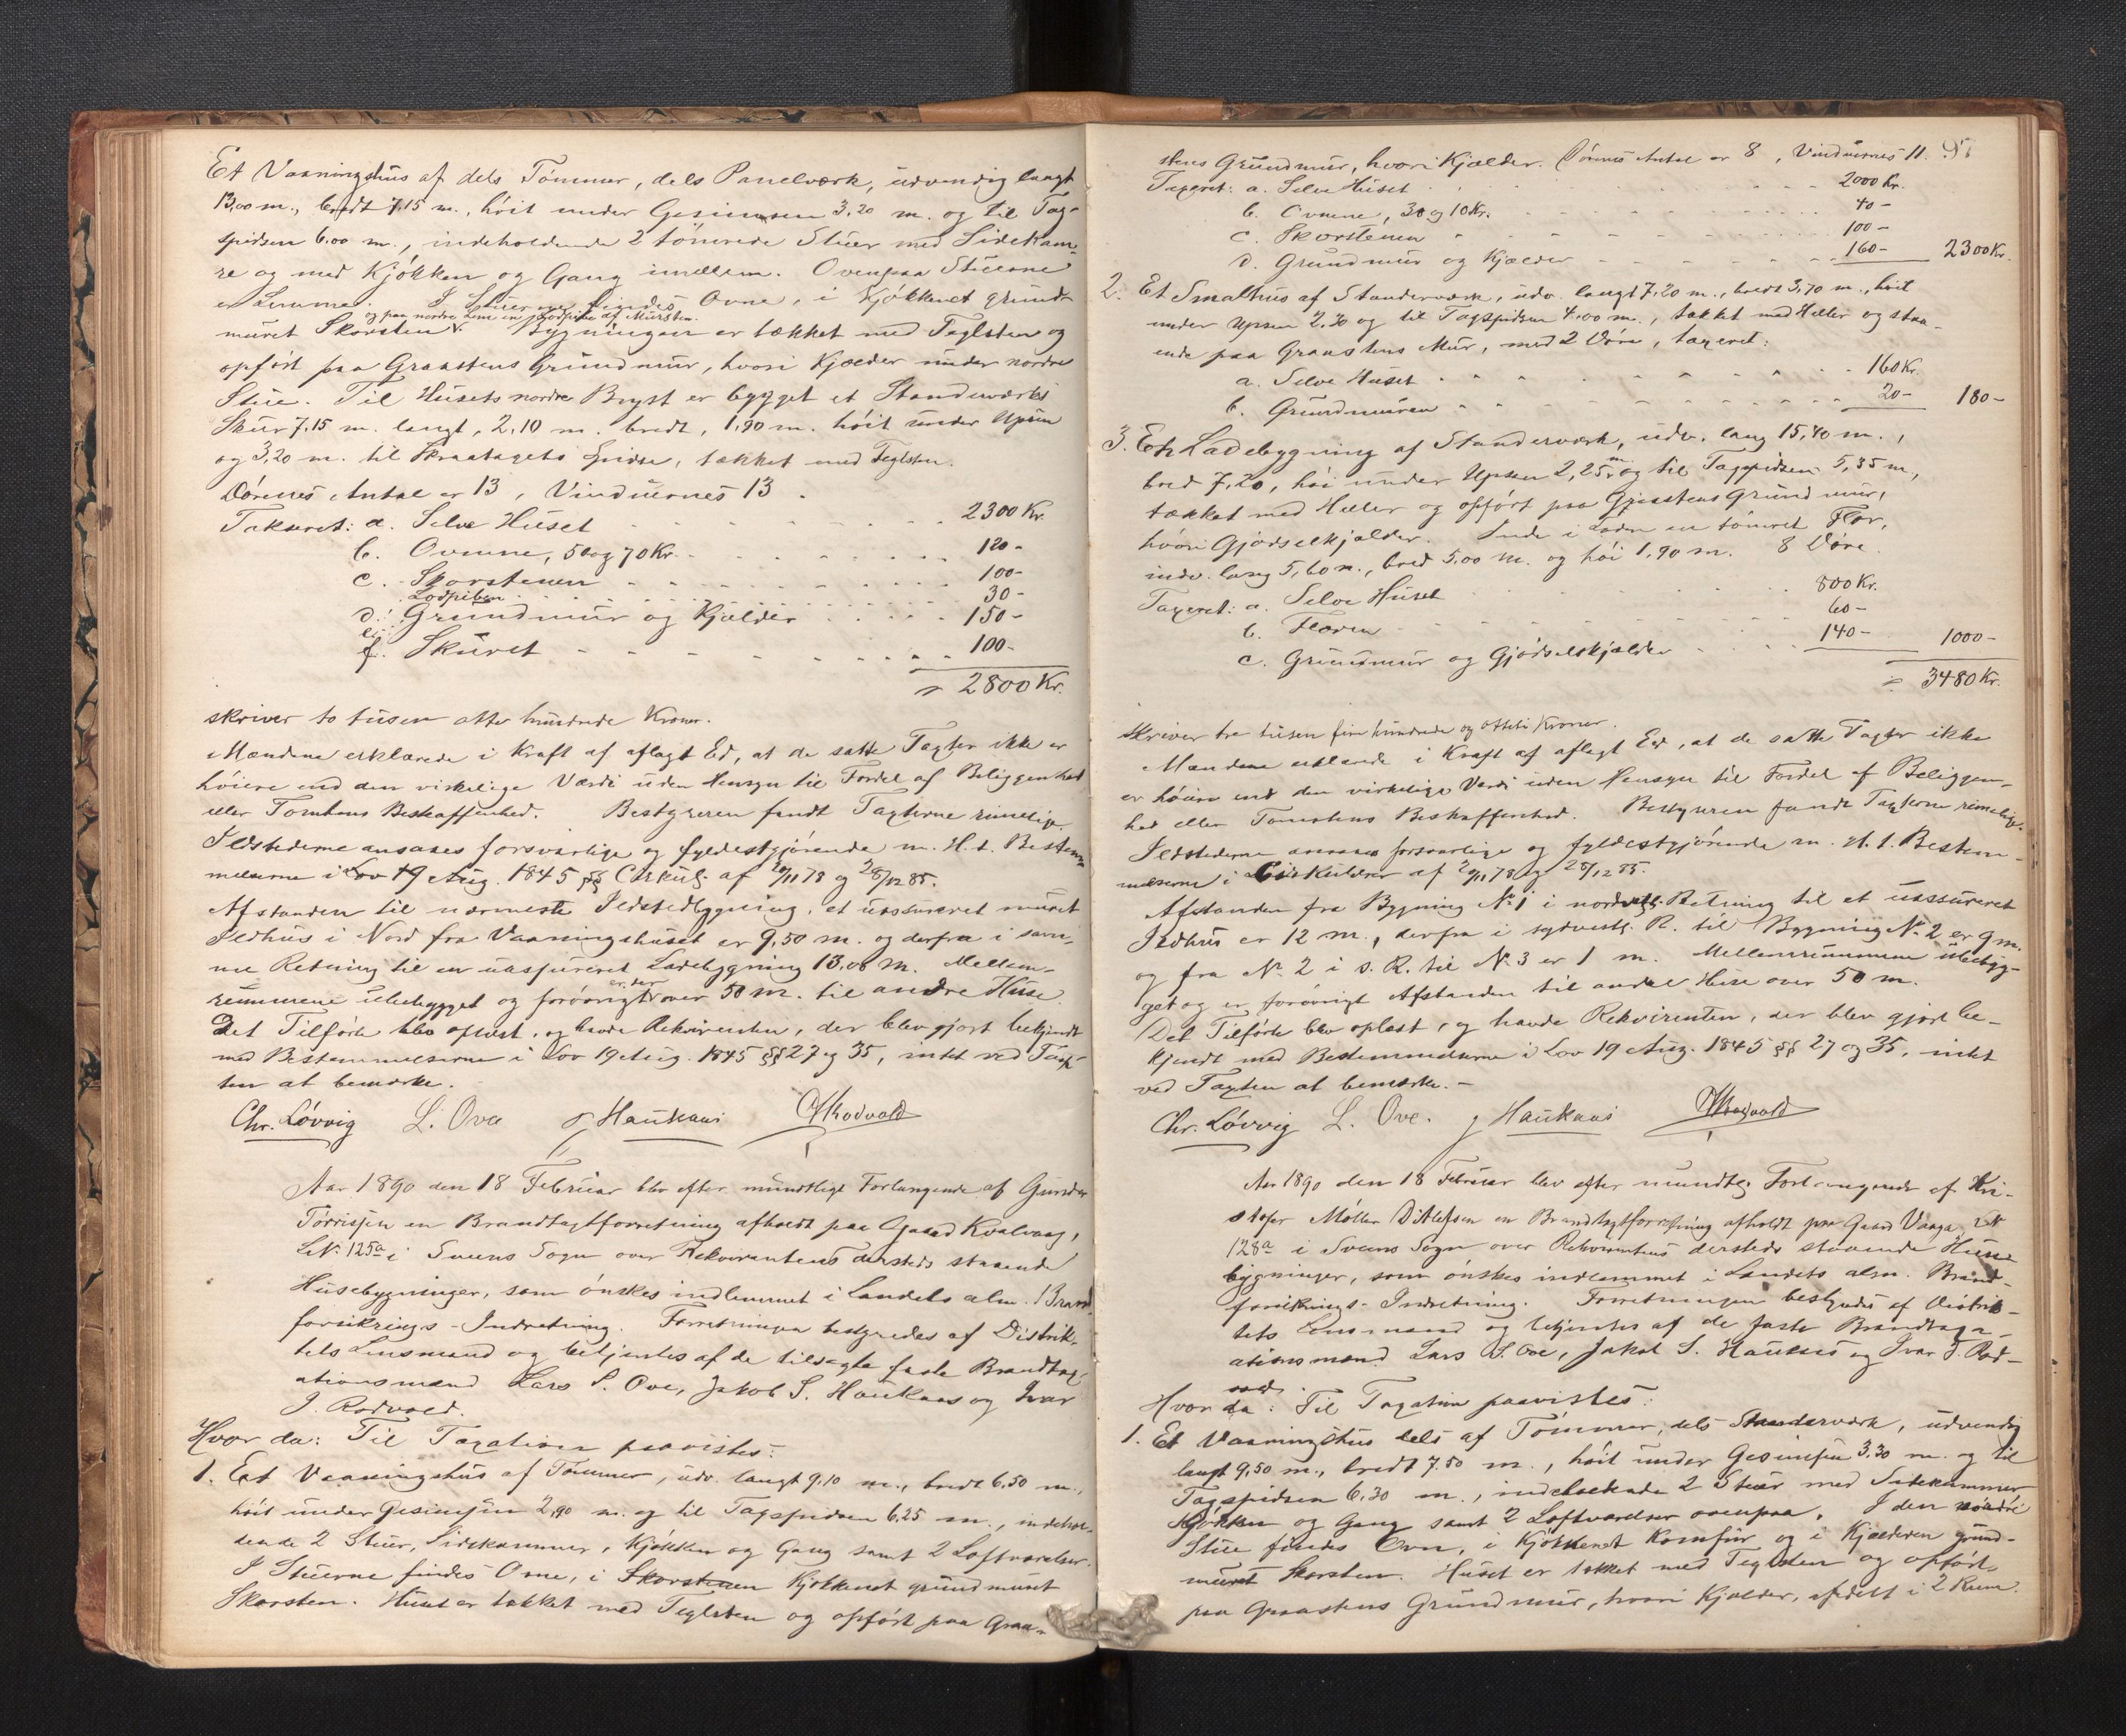 Et Vaaningshus af dels Tømmer, dels Panelværk, udvendig langt
13,00 m., bredt 7,15 m., høit under Gesimsen 3,20 m. og til Tag-
spidsen 6.00 m., indeholdende 2 tømrede Stuer med Sidekam-
re og med Kjøkken og Gang imellem. Ovenpaa Stuerne
er Lemme. I Stuerne findes Ovne, i Kjøkkenet grund-
og paa nordre Lem en Lodpibe af Mursten.
muret Skorsten. Bygningen er tækket med Taglsten og
opført paa Graastens Grundmur, hvori Kjælder under nordre
Stue. Til Husets nordre Bryst er bygget et Standerværks
Skur 7,15 m. langt, 2,10 m. bredt, 1,90 m. høit under Upsen
og 3,20 m. til Skraatagets Ende, tækket med Teglsten.
Dørenes Antal er 13, Vinduernes 13.
Takseret: a. Selve Huset 2300 Kr.
b. Ovnene, 50 og 70 Kr. 120-
c. Skorstenen 100-
Lodpiben 30-
d. Grundmur og Kjælder 150-
f. Skuret 100-
= 2800 Kr.
skriver to tusen otte hundrede Kroner.
Mændene erklærede i Kraft af aflagt Ed, at de satte Taxter ikke er
høiere end den virkelige Værdi uden Hensyn til Fordel af Beliggenhed
eller Tomtens Beskaffenhed. Bestyreren fandt Taxterne rimelige.
Ildstederne ansaaes forsvarlige og fyldestgjørende m. H. t. Bestem-
melserne i Lov 19 Aug. 1845 §§ Cirkulg. af 20/11 78 og 28/12 85.
Afstanden til nærmeste Ildstedbygning, et uassureret muret
Ildhus i Nord fra Vaaningshuset er 9,50 m. og derfra i sam-
me Retning til en uassureret Ladebygning 13,00 m. Mellem-
rummene ubebygget og forøvrigt er der over 50 m. til andre Huse.
Det Tilførte blev oplæst, og havde Rekvirenten, der blev gjort bekjendt
med Bestemmelserne i Lov 19 Aug. 1845 §§ 27 og 35, intet ved Tax-
ten at bemærke.
Chr. Løvvig L. Ove J Haukaas Rodvold
Aar 1890 den 18 Februar blev efter mundtlige Forlangende af Gunder
Tørrisen en Brandtaxtforretning afholdt paa Gaard Kvalvaag,
L.No. 125a i Sveens Sogn over Rekvirentens dersteds staaende
Husebygninger, som ønskes indlemmet i Landets alm. Brand-
forsikrings-Indretning. Forretningen bestyredes af Distrik-
tets Lensmand og betjentes af de tilsagte faste Brandtax-
ationsmænd Lars S. Ove, Jakob S. Haukaas og Ivar
J. Rodvold.
Hvor da: Til Taxation paavistes:
1. Et Vaaningshus af Tømmer, udv. langt 9,10 m., bredt 6,50 m.,
høit under Gesimsen 2,90 m. og til Tagspidsen 6,25 m., indehol-
dende 2 Stuer, Sidekammer, Kjøkken og Gang samt 2 Loftværelser.
I Stuerne findes Ovne, i Skorstenen Kjøkkenet grundmuret
Skorsten. Huset er tækket med Teglsten og opført paa Graa-
stens Grundmur, hvori Kjælder. Dørenes Antal er 8, Vinduernes 11.
Taxeret: a. Selve Huset 2000 Kr.
b. Ovnene, 30 og 10 Kr. 40-
c. Skorstenen 100-
d. Grundmur og Kjælder 160- 2300 Kr.
2. Et Smalhus af Standerværk, udv. langt 7,20 m., bredt 3,70 m., høit
under Upsen 2,30 og til Tagspidsen 4,00 m., tækket med Heller og staa-
ende paa Graastens Mur, med 2 Døre, taxeret:
a. Selve Huset 160 Kr.
b. Grundmuren 20- 180-
3. En Ladebygning af Standerværk, udv. lang 15,40 m.,
bred 7,20, høi under Upsen 2,25 m. og til Tagspidsen 5,35 m.,
tækket med Heller og opført paa Graastens Grundmur,
hvori Gjødselkjælder. Inde i Laden en tømret Flor,
indv. lang 5,60 m., bred 5,00 m. og høi 1,90 m. 8 Døre.
Taxeret: a. Selve Huset 800 Kr.
b. Floren 60-
c. Grundmur og Gjødselskjælder 140- 1000-
= 3480 Kr.
Skriver tre tusen fire hundrede og otteti Kroner.
Mændene erklærede i Kraft af aflagt Ed, at de satte Taxter ikke
er høiere end den virkelige Værdi uden Hensyn til Fordel af Beliggen-
hed eller Tomtens Beskaffenhed. Bestyreren fandt Taxterne rimelige.
Ildstederne ansaaes forsvarlige og fyldestgjørende m. H. t. Bestem-
melserne i Cirkulærer af 20/11 78 og 28/12 85.
Afstanden fra Bygning No. 1 i nordvestl. Retning til et uassureret
Ildhus er 12 m., derfra i sydvestl. R. til Bygning No. 2 er 9 m.
og fra No. 2 i s. R. til No. 3 er 1 m. Mellemrummene ubebyg-
get og er forøvrigt Afstanden til andre Huse over 50 m.
Det Tilførte blev oplæst, og havde Rekvirenten, der blev gjort be-
kjendt med Bestemmelserne i Lov 19 Aug. 1845 §§ 27 og 35, intet
ved Taxten at bemærke. -
Chr. Løvvig L. Ove. J Haukaas Rodvold
Aar 1890 den 18 Februar blev efter mundtlig Forlangende af Kri-
stofer Møller Ditlefsen en Brandtaxtforretning afholdt paa Gaard Vaage, LNo
128a i Sveens Sogn over Rekvirentens dersteds staaende Huse-
bygninger, som ønskes indlemmet i Landets alm. Brand-
forsikrings-Indretning. Forretningen bestyredes af Distrik-
tets Lensmand og betjentes af de faste Brandtaxa-
ationsmænd Lars S. Ove, Jakob S. Haukaas og Ivar J. Rod-
vold.
Hvor da: Til Taxation paavistes:
1. Et Vaaningshus dels af Tømmer, dels Standerværk, udvendig
langt 9,50 m., bredt 7.50 m., høit under Gesimsen 3.30 m. og til
Tagspidsen 6,30 m., indeholdende 2 Stuer med Sidekammer
Kjøkken og Gang samt 2 Loftværelser ovenpaa. I den nordre
Stue findes Ovn, i Kjøkkenet Komfur og i Kjælderen grund-
muret Skorsten. Huset er tækket med Teglsten og opført
paa Graastens Grundmur, hvori Kjælder, afdelt i 2 Rum.